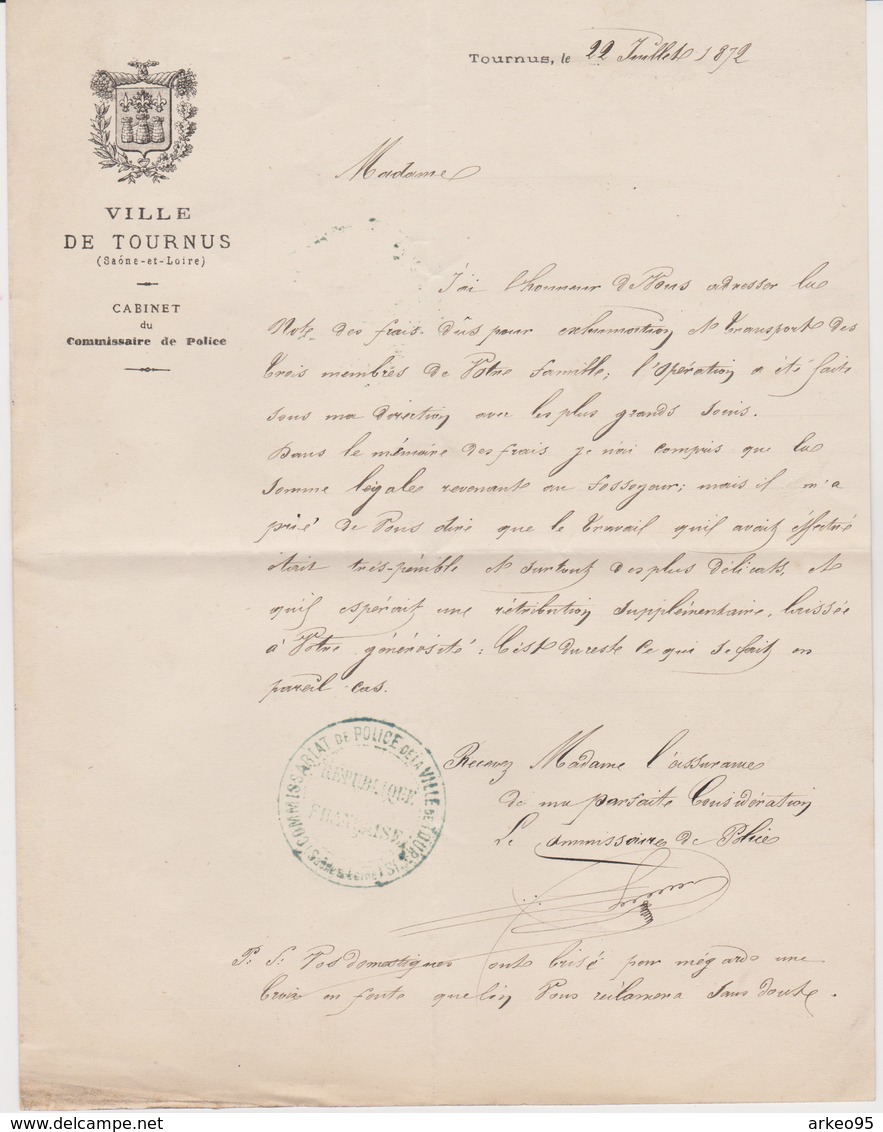 Tournus, le 22 Juillet 1872
VILLE
DE TOURNUS
(Saône-et-Loire)
CABINET
du
Commissaire de Police
Madame
J'ai l'honneur de Vous adresser la
Note des frais dûs pour exhumation et transport des
trois membres de Votre famille; l'Opération a été faite
sous ma direction avec les plus grands soins.
Dans le mémoire des frais je n'ai compris que la
somme légale revenant au fossoyeur; mais il m'a
prié de Vous dire que le travail qu'il avait éffectué
était très-pénible et surtout des plus délicats, et
qu'il espérait une rétribution supplémentaire, laissée
à Votre générosité: C'est du reste ce qui se fait en
pareil cas.
Recevez Madame l'assurance
de ma parfaite Considération
Le Commissaire de Police
COMMISSARIAT DE POLICE DE LA VILLE DE TOURNUS
(SAÔNE & LOIRE)
RÉPUBLIQUE
FRANÇAISE
P. S: Vos domestiques ont brisé par mégarde une
Croix en fonte que l'on Vous réclamera sans doute.
delcampe.net
arkeo95